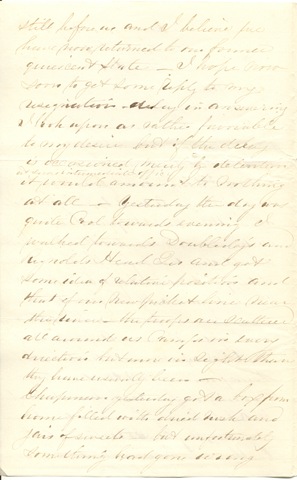 still before us and I believe we
have now returned to our former
quiescent state – I hope now
soon to get some reply to my
resignation delay in answering
I look upon as rather favorable
to my desire but if the delay
is occasioned merely by detention
at
it would amount to nothing
at all – Yesterday the day was
quite cool towards evening I
walked towards Doubledays and
Reynolds Head Qrs and got
some idea of relative position and
that of our new picket line near
the river – the troops are scattered
all around us camps in every
direction but more in sight than
they have recently been –
Chapman yesterday got a box from
home filled with and
jars of sweets – but unfortunately
something had gone wrong